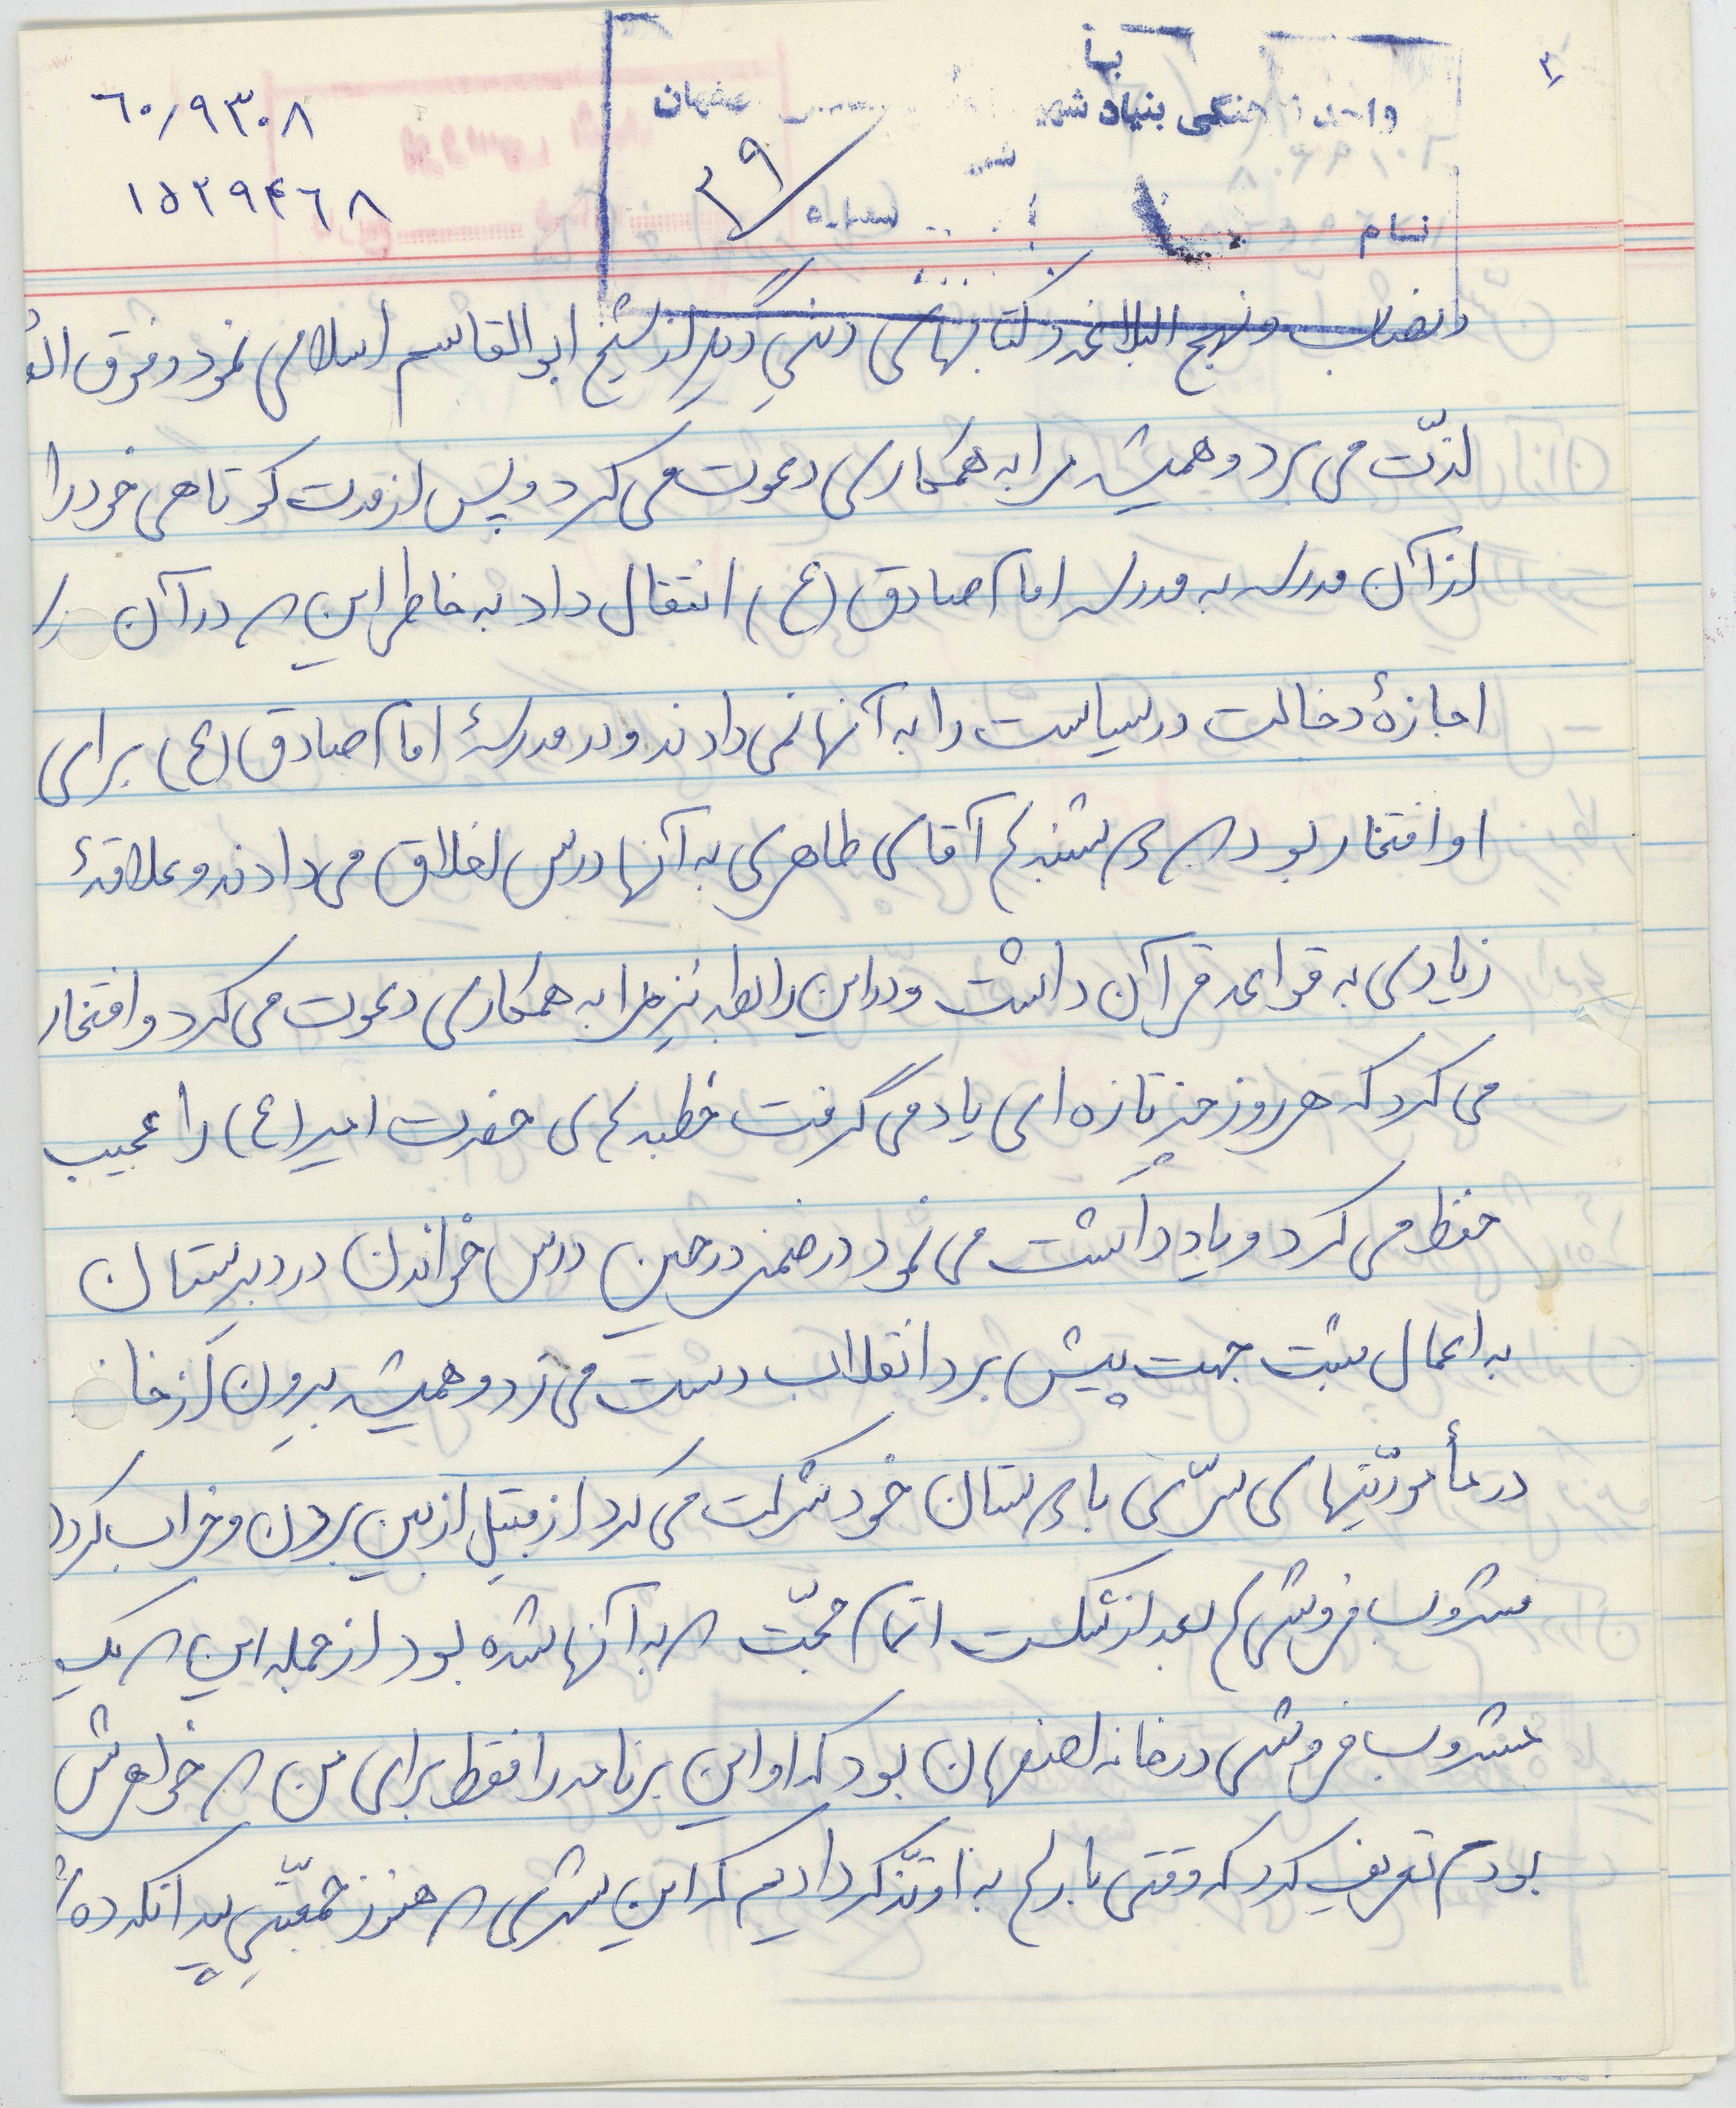 ۳
واحد فرهنگی بنیاد شهید اصفهان
۶۰٫۹۳۰۸
۱۵۲۹۴۶۸
۳۹
شماره
نام
ونصاب ونهج البلاغه وکتابهای دینی دیگر از شیخ ابوالقاسم اسلامی نمود وفوق
لذّت می برد وهمیشه مرا به همکاری دعوت می کرد وپس از مدت کوتاهی خود را
از آن مدرسه به مدرسه امام صادق (ع) انتقال داد به خاطر این که در آن
اجازهٔ دخالت در سیاست را به آنها نمی دادند ودر مدرسهٔ امام صادق (ع) برای
او افتخار بود که پنجشنبه ها آقای طاهری به آنها درس اخلاق می دادند وعلاقهٔ
زیادی به قواعد قرآن داشت ودر این رابطه نیز مرا به همکاری دعوت می کرد وافتخار
می کرد که هر روز چیز تازه ای یاد می گرفت خطبه های حضرت امیر (ع) را عجیب
حفظ می کرد ویادداشت می نمود در ضمن در حین درس خواندن در دبیرستان
به اعمال مثبت جهت پیش برد انقلاب دست می زد وهمیشه بیرون از خانه
در مأموریّتهای سرّی با دوستان خود شرکت می کرد از قبیل از بین بردن وخراب کردن
مشروب فروشی ها بعد از شکست اتمام حجّت که به آنها شده بود از جمله این که یک
مشروب فروشی در خانه اصفهان بود که او این برنامه را فقط برای من که خواهرش
بودم تعریف کرد که وقتی بارها به او تذکّر دادیم که این مشتری که هنوز جمعیّتی پیدا نکرده